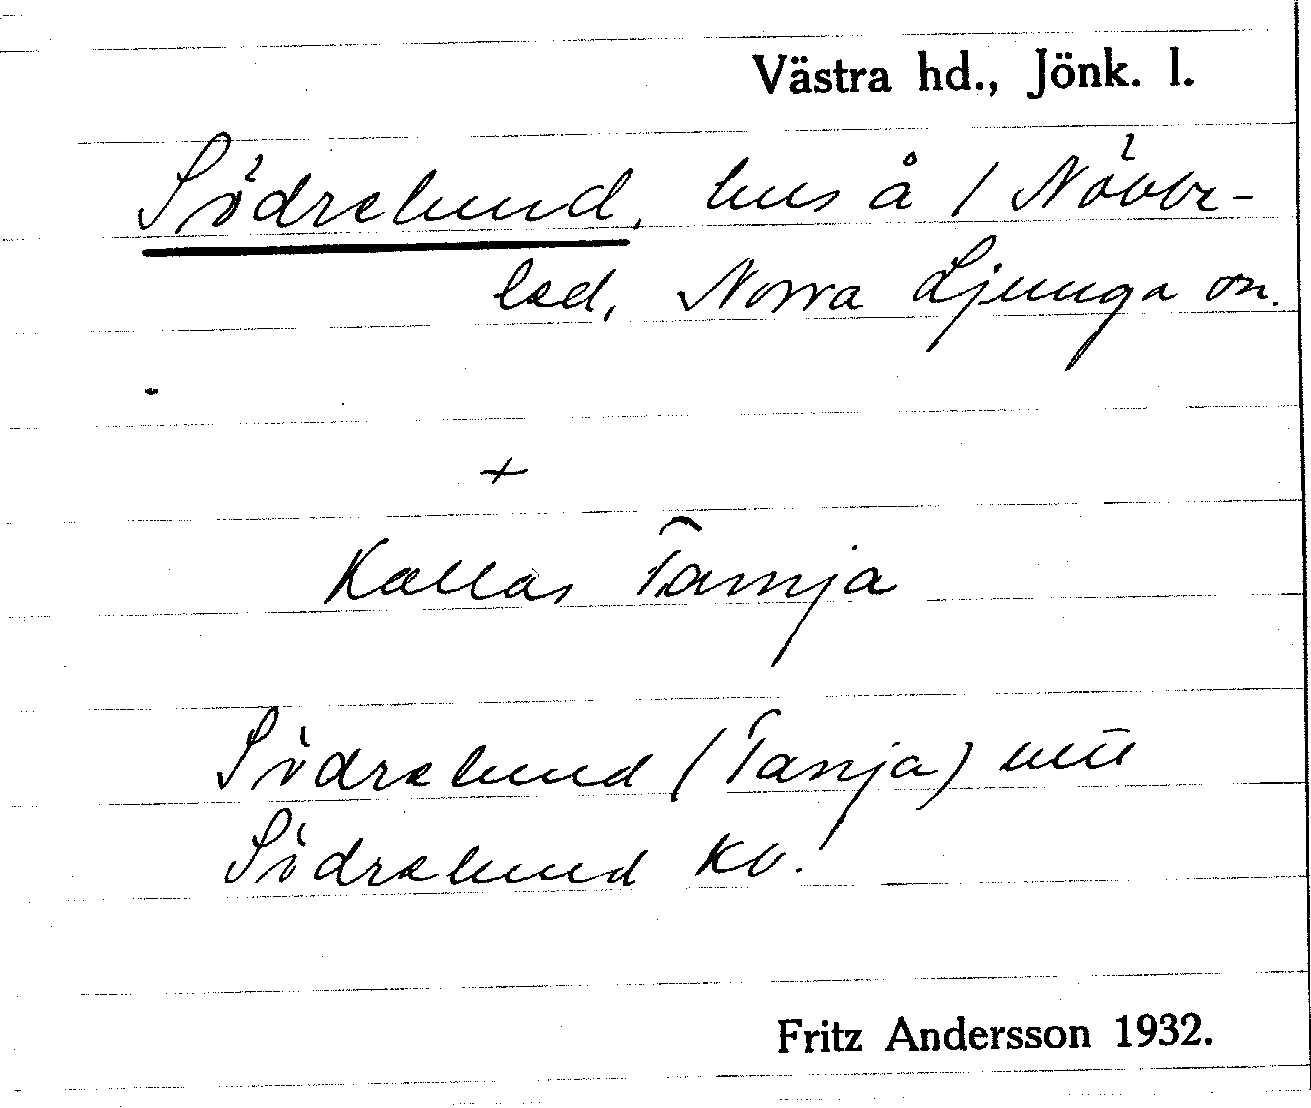 Västra hd., Jönk. l.
Södralund, hus å 1 Növbe-
led, Norra Ljunga sn.
+
Kallas Tanja
Södralund (Tanja)
Södralund kv.
Fritz Andersson 1932.